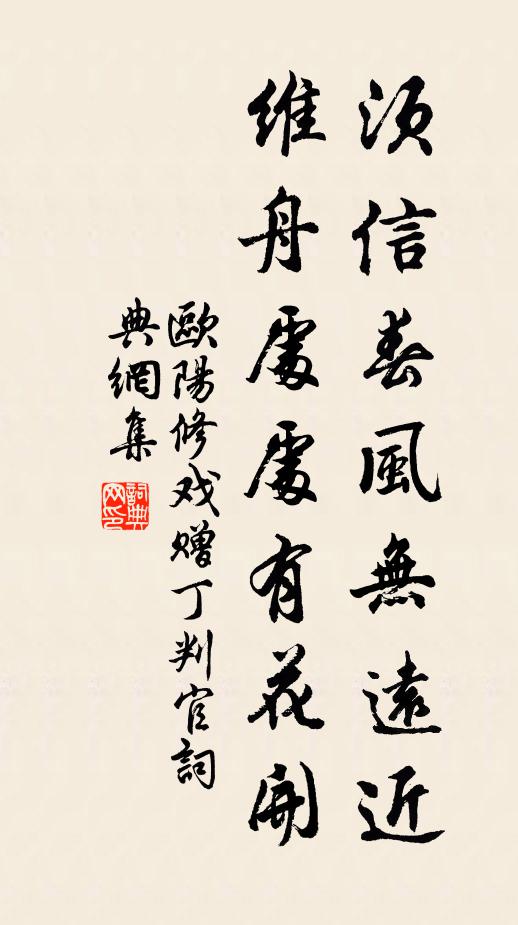 須信春風無遠近
維舟處處有花開
歐陽修戏赠丁判官詞
典網集
詞典网印